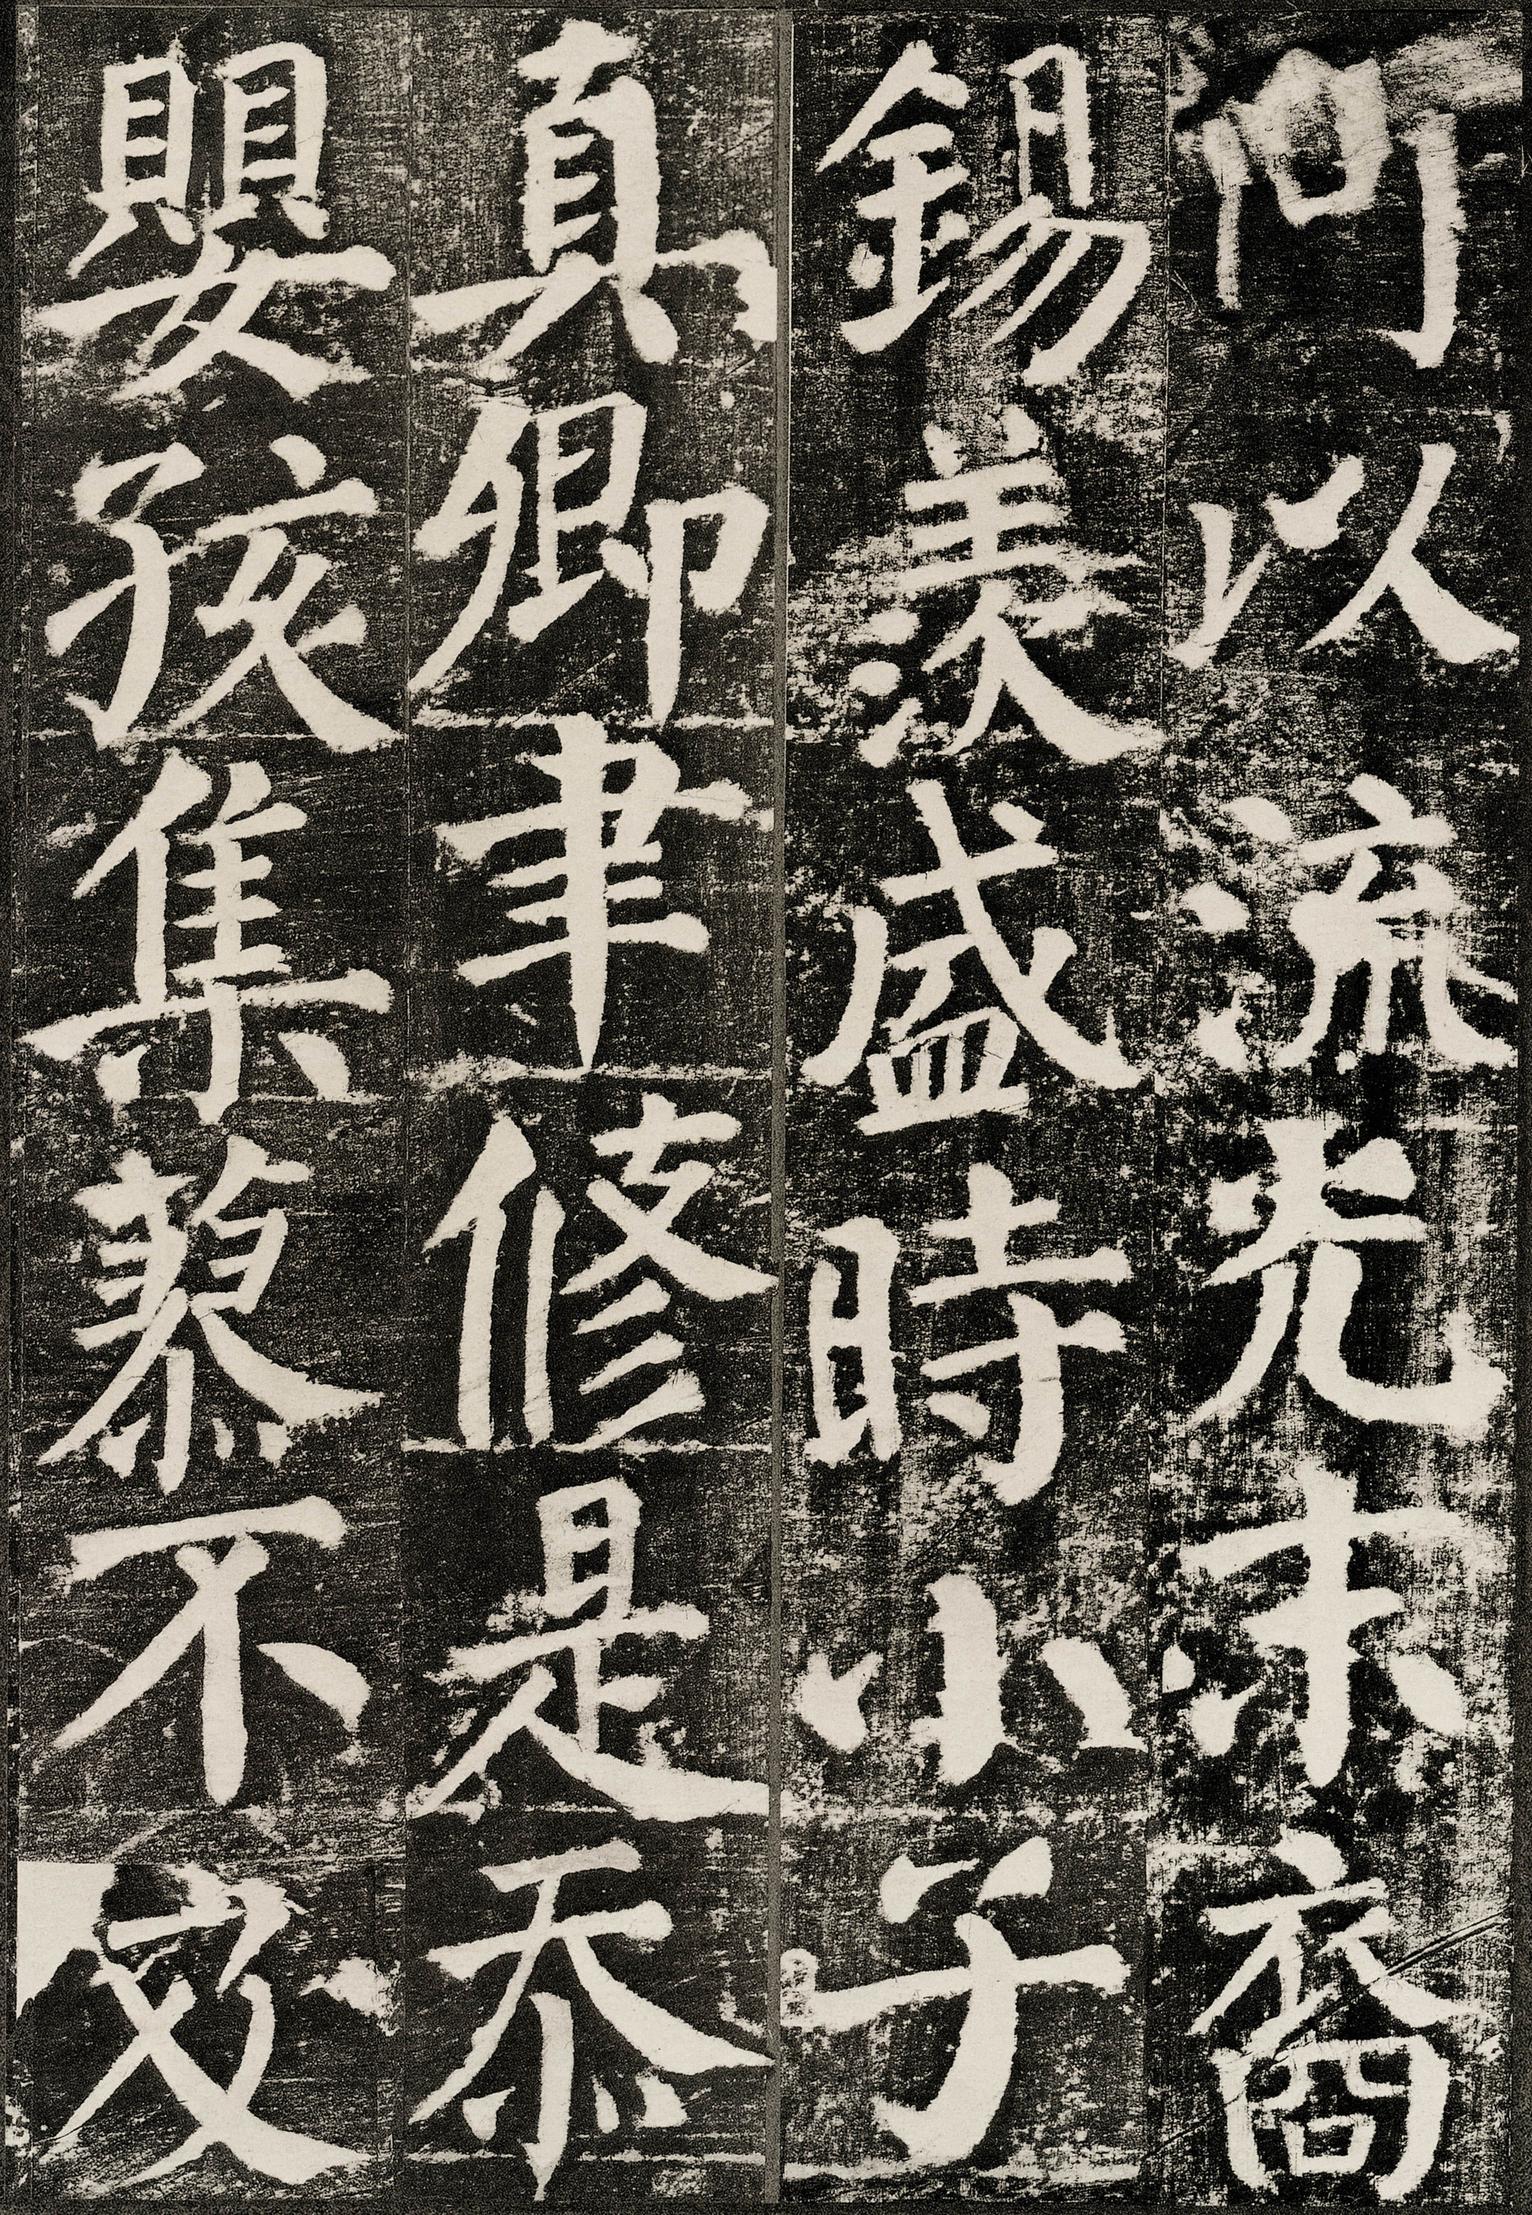 何以流光末裔
錫羨盛時小子
真卿聿修是忝
嬰孩集藜不及